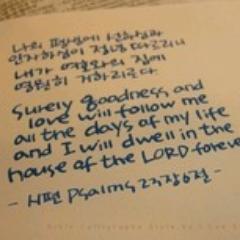 나의 평생에 선하심과
인자하심이 정녕 따르리니
내가 여호와의 집에
영원히 거하리로다
Surely goodness and
love will follow me
all the days of my life
and I will dwell in the
house of the LORD forever
- 시편 Psalms 23장 6절 -
Bible Calligraphy